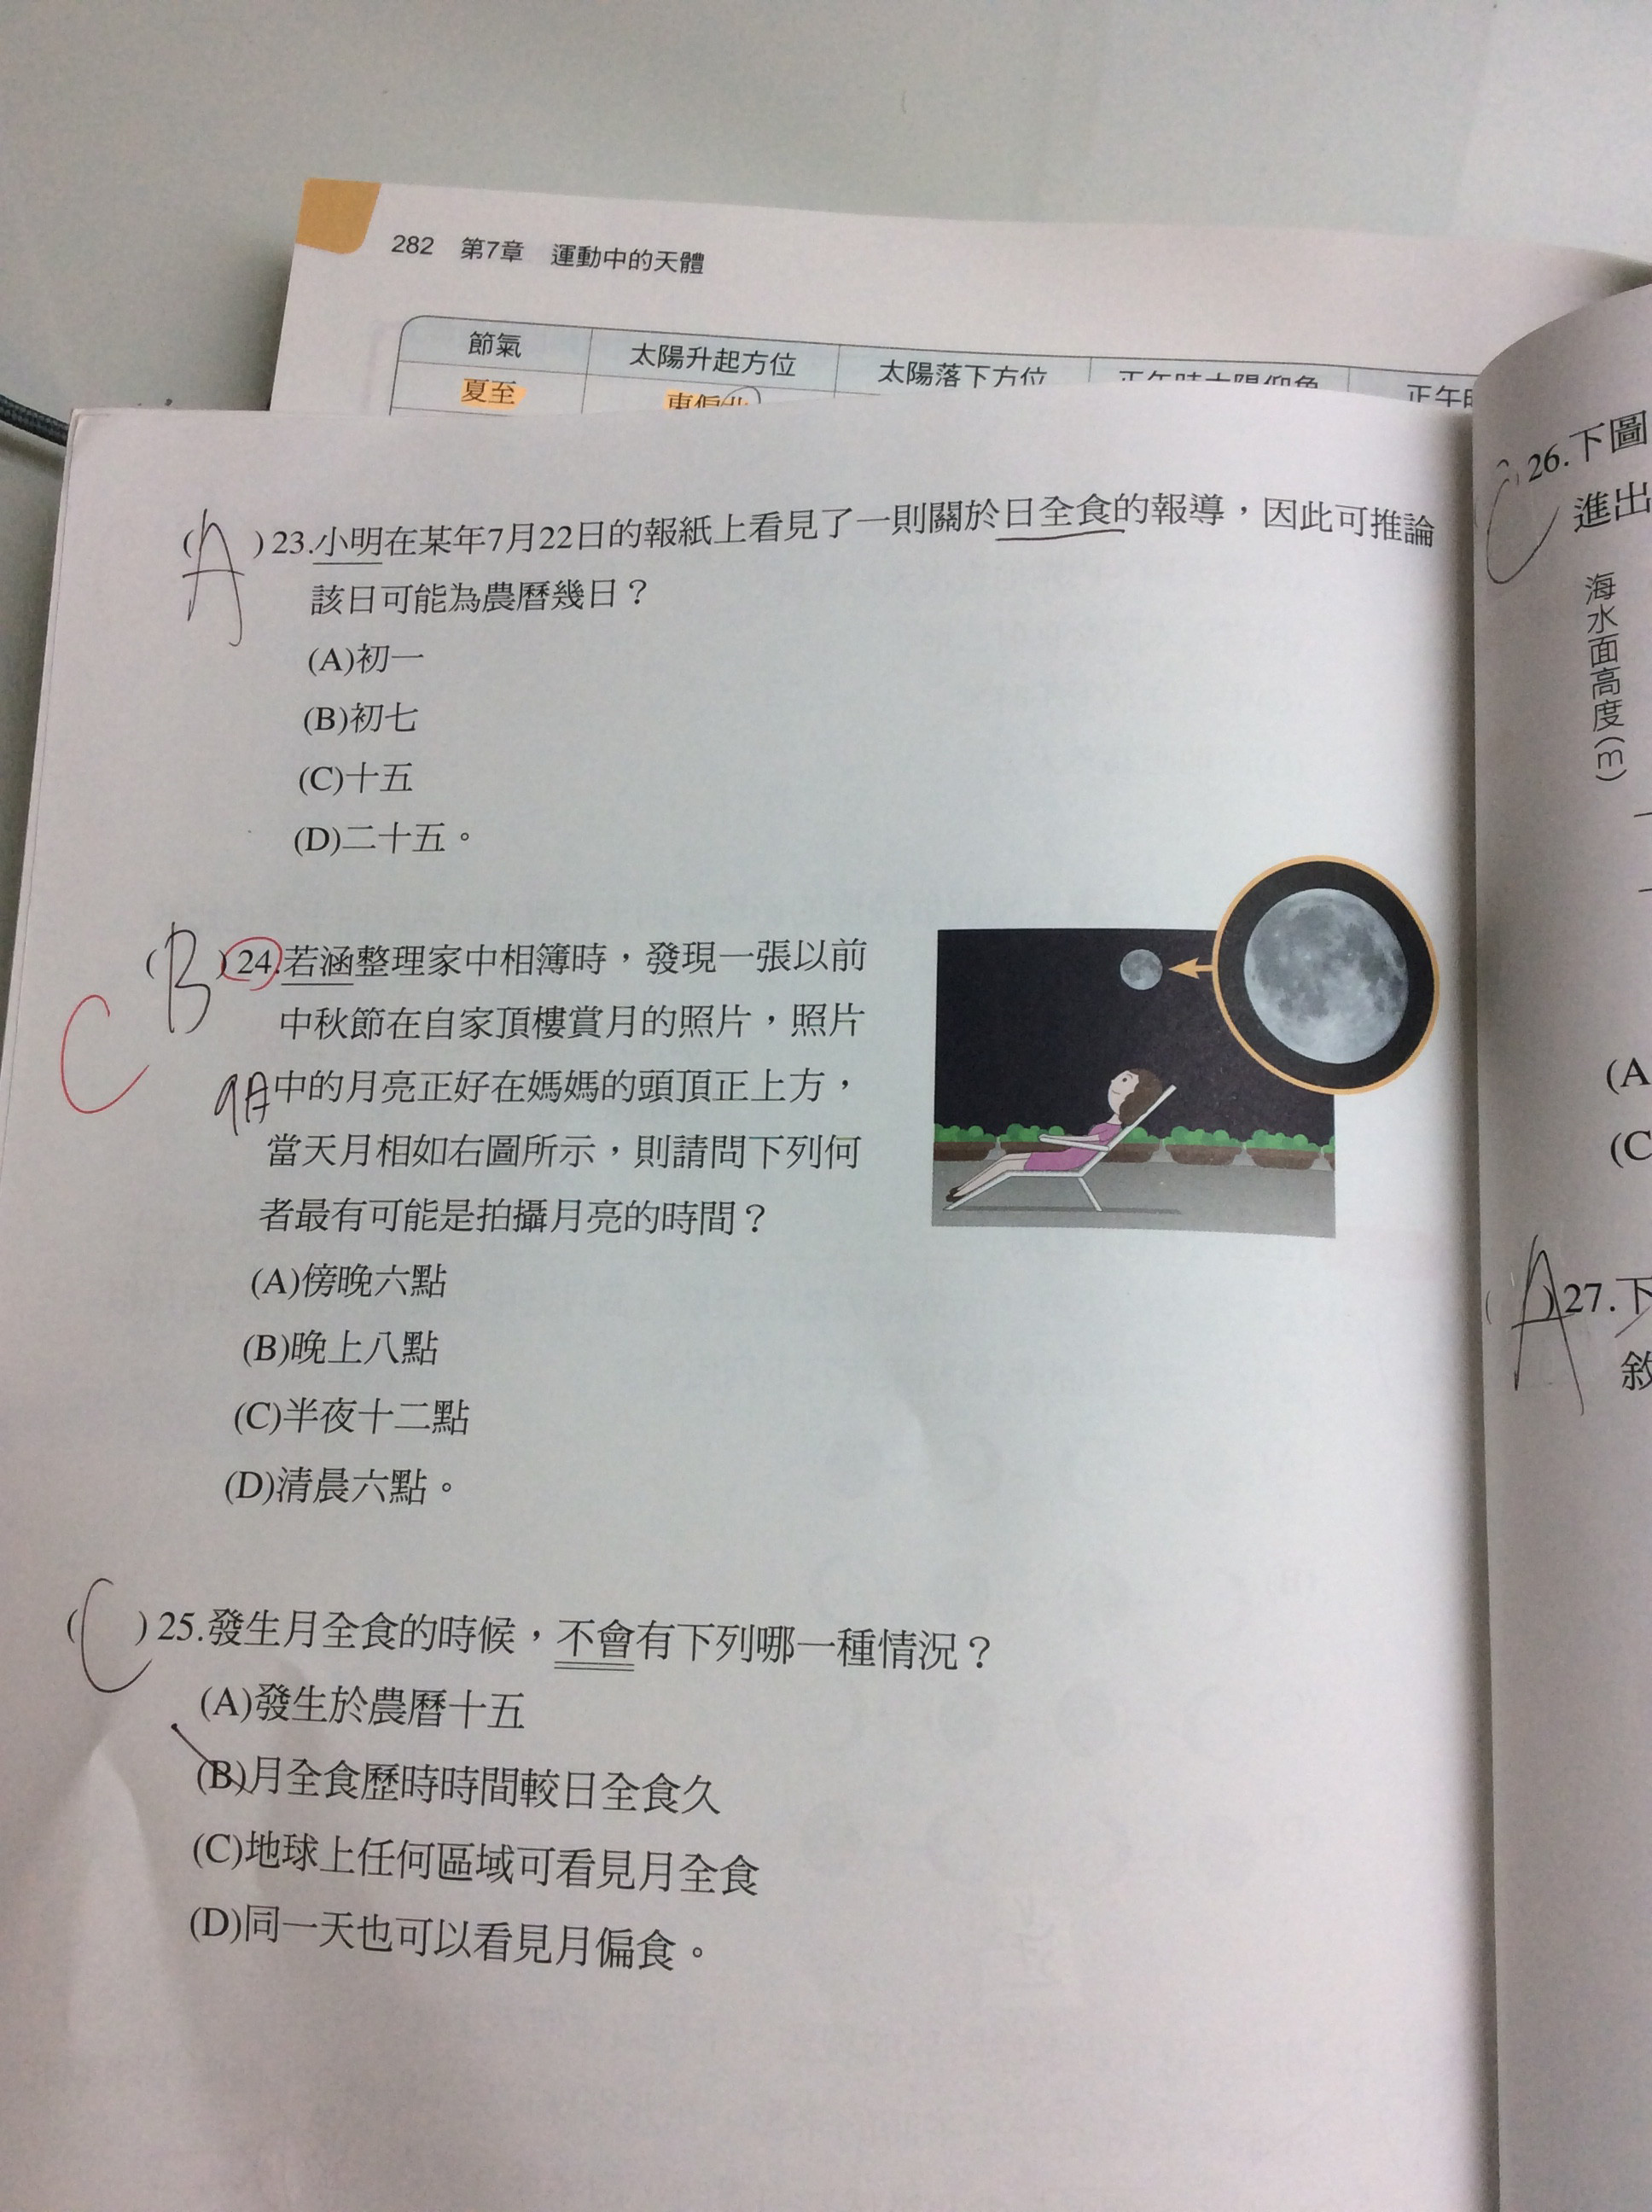 282 第7章 運動中的天體
節氣 太陽升起方位 太陽落下方位 正午時太陽仰角 正午時
夏至 東偏北
(A)23.小明在某年7月22日的報紙上看見了一則關於日全食的報導，因此可推論
該日可能為農曆幾日？
(A)初一
(B)初七
(C)十五
(D)二十五。
(B)24.若涵整理家中相簿時，發現一張以前
C
中秋節在自家頂樓賞月的照片，照片
中的月亮正好在媽媽的頭頂正上方，
當天月相如右圖所示，則請問下列何
者最有可能是拍攝月亮的時間？
(A)傍晚六點
(B)晚上八點
(C)半夜十二點
(D)清晨六點。
(C)25.發生月全食的時候，不會有下列哪一種情況？
(A)發生於農曆十五
(B)月全食歷時時間較日全食久
(C)地球上任何區域可看見月全食
(D)同一天也可以看見月偏食。
C 26.下圖
進出
海水面高度(m)
(A
(C
(A)27.下
敘